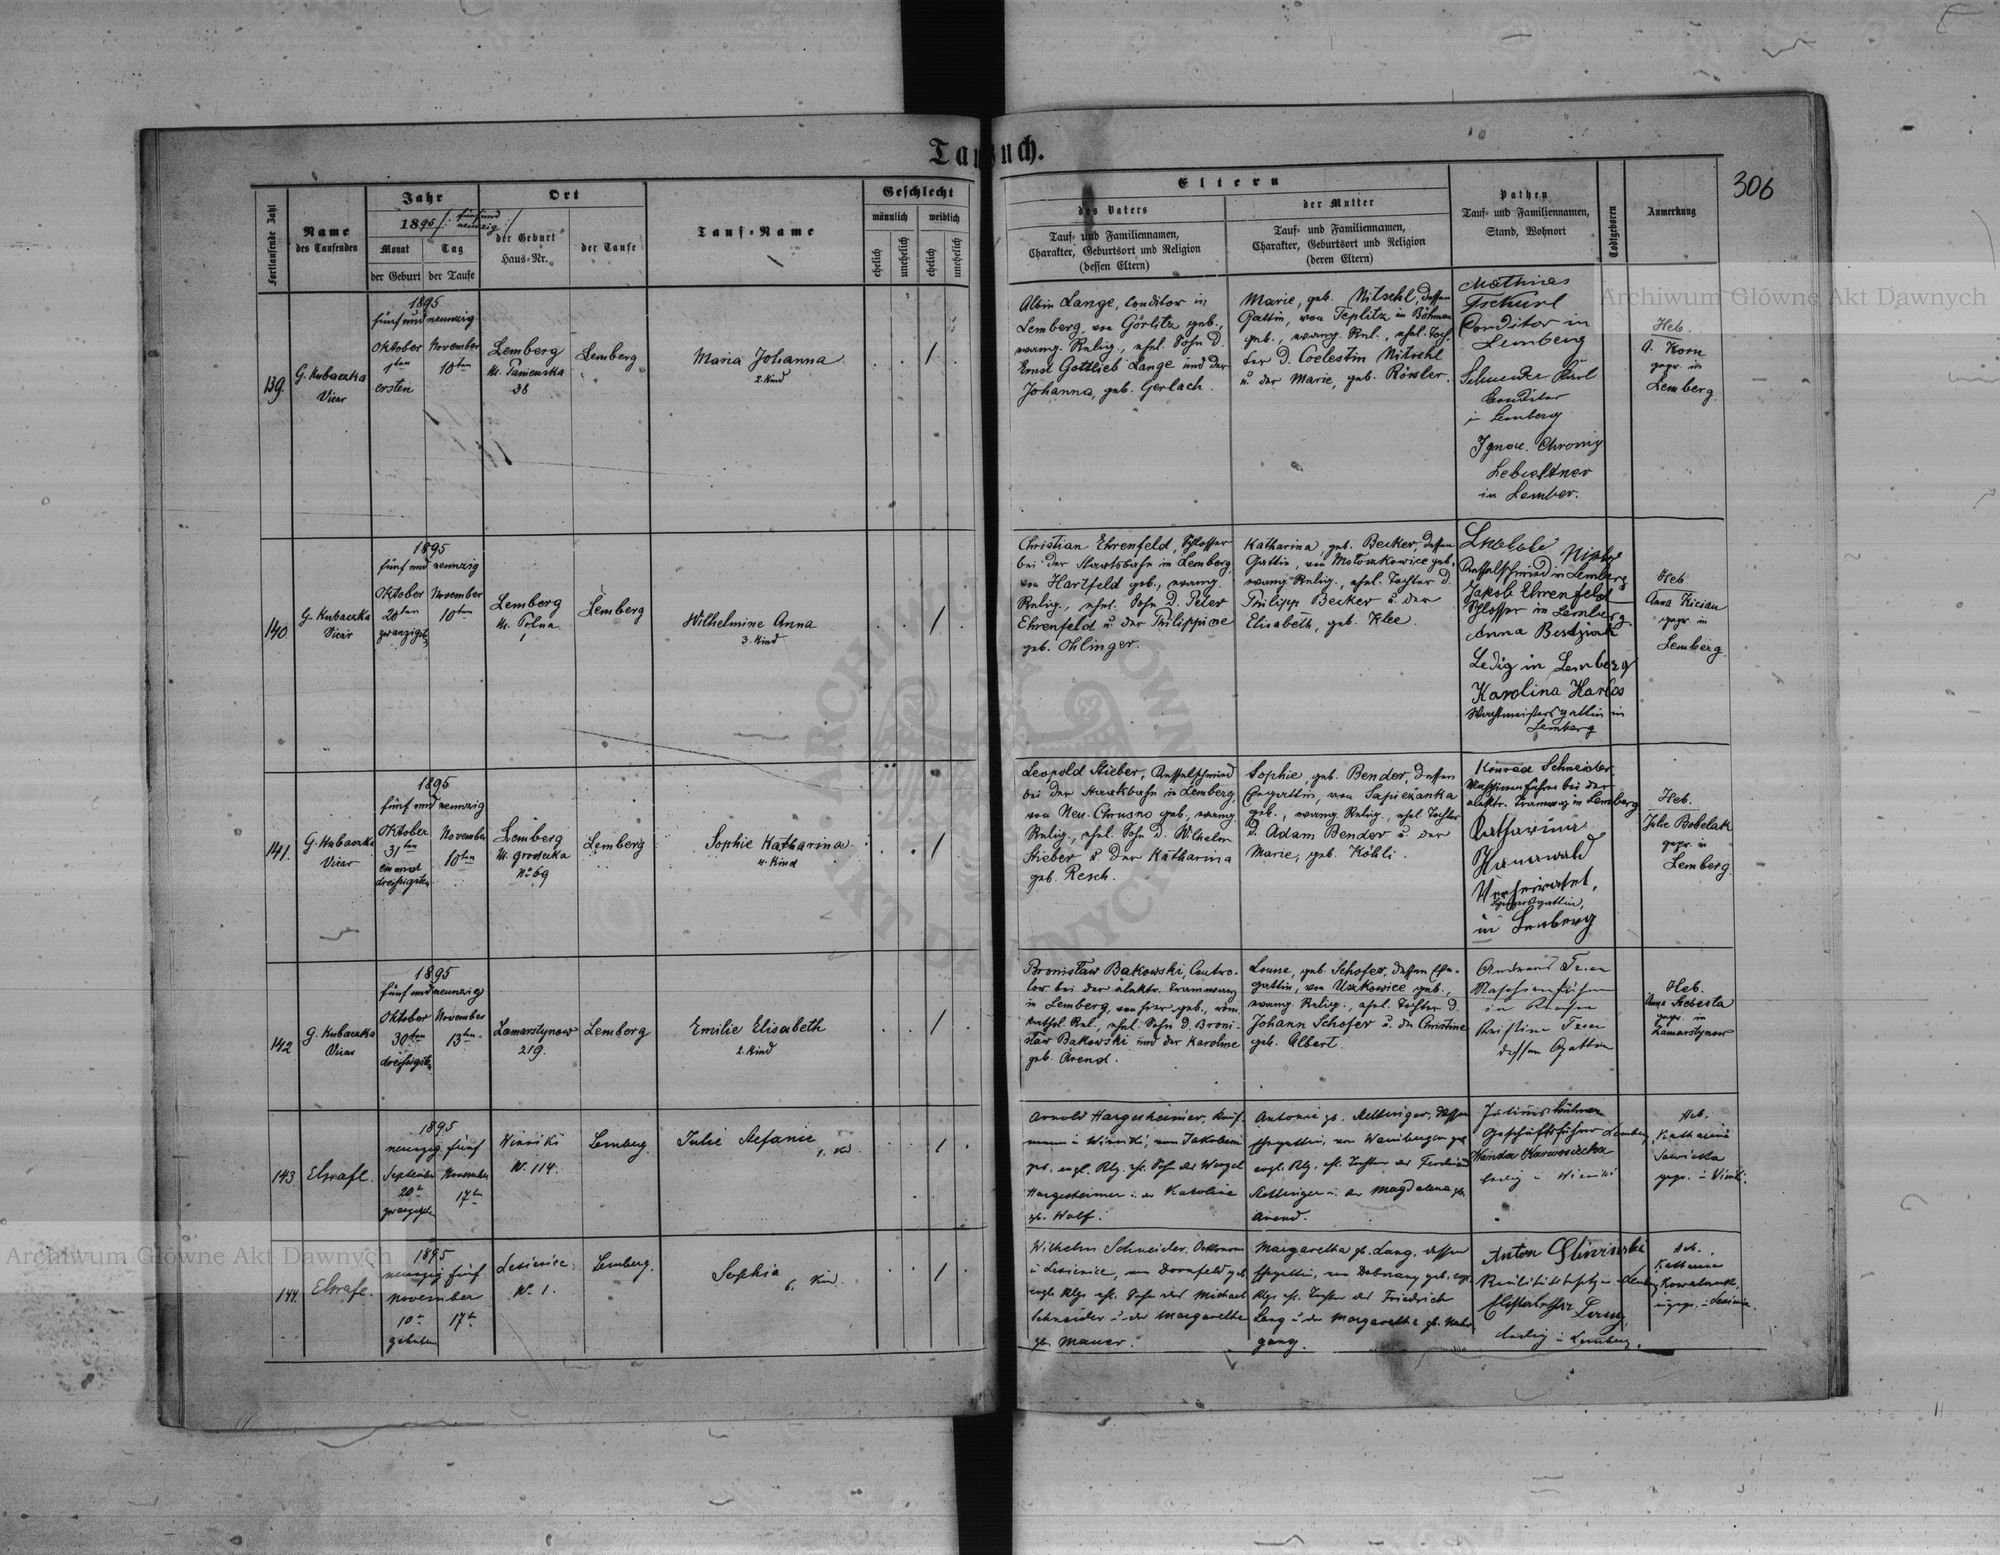 306
Taufbuch.
Fortlaufende Zahl
Name
des Taufenden
Jahr
1895 /: fünf und
neunzig :/
Monat
Tag
der Geburt
der Taufe
Ort
der Geburt
Haus-Nr.
der Taufe
Tauf-Name
Geschlecht
männlich
weiblich
ehelich
unehelich
ehelich
unehelich
Eltern
des Vaters
Tauf- und Familiennamen,
Charakter, Geburtsort und Religion
(dessen Eltern)
der Mutter
Tauf- und Familiennamen,
Charakter, Geburtsort und Religion
(deren Eltern)
Pathen
Tauf- und Familiennamen,
Stand, Wohnort
Todtgeboren
Anmerkung
139.
G. Kubaczka
Vicar
1895
fünf und neunzig
Oktober
1ten
ersten
November
10ten
Lemberg
38
Lemberg
Maria Johanna
2. Kind
Albin Lange, Conditor in
Lemberg, von Görlitz geb.,
evang. Relig., ehel. Sohn d.
Ernst Gottlieb Lange und der
Johanna, geb. Gerlach.
Marie, geb. Nitschl, dessen
Gattin, von Teplitz in Böhmen
geb., evang. Rel., ehel. Toch-
ter d. Coelestin Nitschl
u. der Marie, geb. Rössler.
Mathias
Conditor in
Lemberg
Conditor
in Lemberg
in Lember.
Heb.
A. Korn
gepr. in
Lemberg.
140.
G. Kubaczka
Vicar
1895
fünf und neunzig
Oktober
20ten
zwanzigsten
November
10ten
Lemberg
1
Lemberg
Wilhelmine Anna
3. Kind
Christian Ehrenfeld, Schlosser
bei der Staatsbahn in Lemberg,
von Hartfeld geb., evang.
Relig., ehel. Sohn d. Peter
Ehrenfeld u. der Philippine
geb. Ohlinger.
Katharina, geb. Becker, dessen
Gattin, von Mołoszkowice geb.,
evang. Relig., ehel. Tochter d.
Philipp Becker u. der
Elisabeth, geb. Klee.
Kesselschmied in Lemberg
Jakob Ehrenfeld
Schlosser in Lemberg.
Anna
Ledig in Lemberg
Karolina Harlos
Wachtmeistersgattin in
Lemberg
Heb.
Anna Kician
gepr. in
Lemberg.
141.
G. Kubaczka
Vicar
1895
fünf und neunzig
Oktober
31ten
ein und
dreissigsten
November
10ten
Lemberg
Ul. Grodecka
No 69
Lemberg
Sophie Katharina
4. Kind
Leopold Stieber, Kesselschmied
bei der Staatsbahn in Lemberg,
von Neu-Chrusno geb., evang.
Relig., ehel. Sohn d. Wilhelm
Stieber u. der Katharina
geb. Resch.
Sophie, geb. Bender, dessen
Ehegattin, von Sapieżanka
geb., evang. Relig., ehel. Tochter
d. Adam Bender u. der
Marie, geb. Köhli.
Konrad Schneider,
Maschinenführer bei der
elektr. Tramway in Lemberg
Katharina
Hanawald
Verheiratet,
in Lemberg
Heb.
Julie Bobelak
gepr. in
Lemberg.
142
G. Kubaczka
Vicar
1895
fünf und neunzig
Oktober
30ten
dreissigsten
November
13ten
Zamarstynow
219.
Lemberg
Emilie Elisabeth
2. Kind
Bronisław Bakowski, Contro-
lor bei der elektr. Tramway
in Lemberg, von hier geb., röm.
kathol. Rel., ehel. Sohn d. Broni-
sław Bakowski und der Karoline
geb. Arend.
Louise, geb. Schofer, dessen Ehe-
gattin, von Uszkowice geb.,
evang. Relig., ehel. Tochter d.
Johann Schofer u. der Christine
geb. Albert.
Andreas
Maschienführer
dessen Gattin
Heb.
gepr. in
Zamarstynow
143.
Elsrafl.
1895
neunzig fünf
September
20t
zwanzigsten
November
17t
Winniki
Nr. 114.
Lemberg.
Julie Stefanie
1. Kd.
Arnold Hargesheimer, Kauf-
mann in Winniki, von Jakobeni
geb. evgl. Rlg. ehl. Sohn des Wenzel
Hargesheimer u. der Karoline
gb. Wolf.
Antonie gb. Rettinger, dessen
Ehegattin, von Weinbergen geb.
evgl. Rlg. ehl. Tochter des Ferdinand
Rettinger u. der Magdalena gb.
Arend.
Geschäftsführer Lemberg
Wanda
ledig in Winniki
Heb.
Katharina
Sawicka
gepr. in Winniki.
144.
Elsrafl.
1895
neunzig fünf
November
10t
zehnten
17t
Lesienice
Nr. 1.
Lemberg.
Sophia
6. Kind.
Wilhelm Schneider, Oekonom
in Lesienice, von Dornfeld geb.
evgl. Rlg. ehl. Sohn des Michael
Schneider u. der Margarethe
gb. Mauer.
Margaretha gb. Lang, dessen
Ehegattin, von Dobrzany geb. evgl.
Rlg. ehl. Tochter des Friedrich
Lang u. der Margarethe gb. Nahr-
gang.
Anton
Realitätsbesitzer Lemberg
Elisabetha Lang,
ledig in Lemberg.
Heb.
Katharina
Kowalczuk,
ungepr. in Lesienice.
Archiwum Główne Akt Dawnych
Archiwum Główne Akt Dawnych
ARCHIWUM GŁÓWNE AKT DAWNYCH